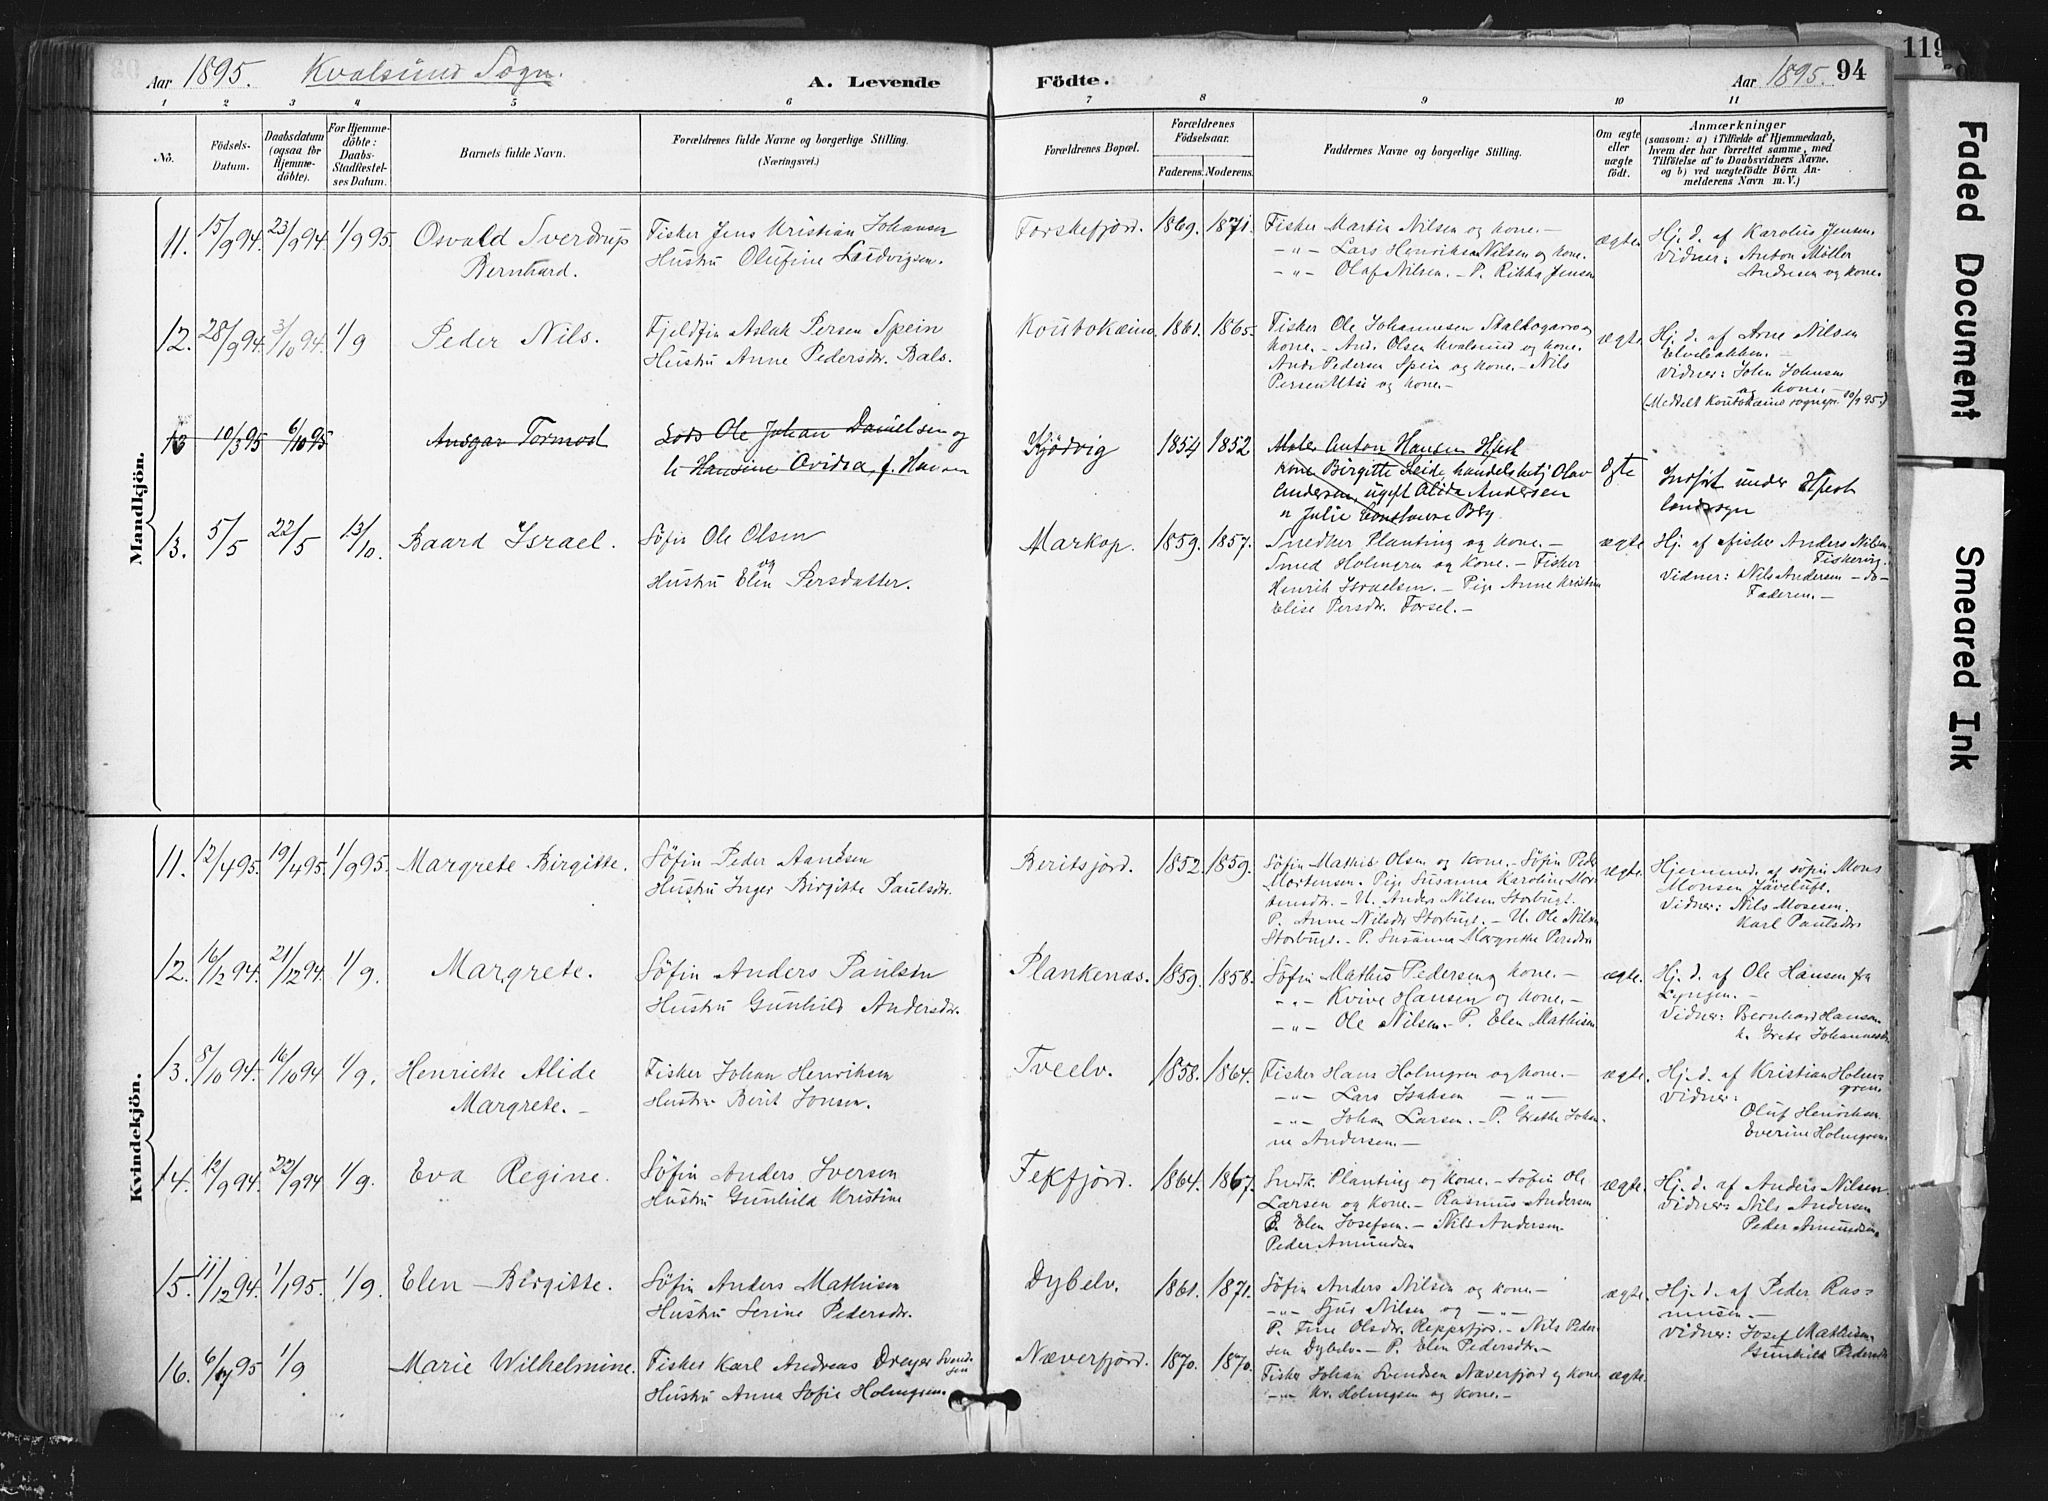 Aar 1895. Kvalsund Sogn. A. Levende Födte. Aar 1895. 94
119
1 2 3 4 5 6 7 8 9 10 11
Nö.
Födsels-Datum.
Daabsdatum (ogsaa för Hjemmedöbte).
For Hjemmedöbte: Daabs-Stadfæstelses Datum.
Barnets fulde Navn.
Forældrenes fulde Navne og borgerlige Stilling.
(Næringsvei.)
Forældrenes Bopæl.
Forældrenes Födselsaar.
Faderens. Moderens.
Faddernes Navne og borgerlige Stilling.
Om ægte eller uægte födt.
Anmærkninger
(saasom: a) i Tilfælde af Hjemmedaab, hvem der har forrettet samme, med Tilföielse af to Daabsvidners Navne, og b) ved uægtefödte Börn Anmelderens Navn m. V.)
Mandkjön.
11. 15/9 94. 23/9 94. 1/9 95. Osvald Sverdrup Bernhard.
Fisker Jens Kristian Johansen
Hustru Olufine Ludvigsen.
Forskefjord. 1869. 1871.
Fisker Martin Nilsen og kone.—
—„— Lars Henriksen Nilsen og kone.
—„— Olaf Nilsen.— P. Rikka Jensen
ægte.
Hj. d. af Karolus Jensen.
Vidner: Anton Möller
Andresen og kone.
12. 28/9 94. 3/10 94. 1/9 Peder Nils.
Fjeldfin Aslak Persen Spein
Hustru Anne Pedersdr. Bals.
Koutokæino. 1861. 1865.
Fisker Ole Johannesen
kone.— And. Olsen Kvalsund og kone.
And. Pedersen Spein og kone.— Nils
Persen Utsi og kone.—
ægte.
Hj. d. af Arne Nilsen
Elvebakken.—
Vidner: John Johnsen
og kone.—
(Meddelt Koutokæino sognepr. 10/9 95.)
13 10/3 95 6/10 95 Ansgar Tormod
Lods Ole Johan Danielsen og
h. Hansine Ovidia, f. Hansen
Kjödvig 1854 1852
Anton Hansen
kone Birgitte handelsbetj Olav
Andersen, ugift Alida Andersen
„ Julie
Ægte
Indfört under
landsogn
13. 5/5 22/5 13/10. Baard Israel.
Söfin Ole Olsen
og
Hustru Elen Persdatter.
Markop. 1859. 1857.
Snedker Planting og kone.—
Smed Holmgren og kone.— Fisker
Henrik Israelsen.— Pige Anne Kristine
Elise Persdr. Forsel.—
ægte
Hj. af fisker Anders Nilsen
Fiskevig.
Vidner: Nils Andersen —do—
Faderen.—
Kvindekjön.
11. 12/4 95. 19/4 95. 1/9 95. Margrete Birgitte.
Söfin Peder
Hustru Inger Birgitte Paulsdr.
Beritsjord. 1852. 1859.
Söfin Mathis Olsen og kone.— Söfin Peder
Mortensen. Pige Susanna Karoline Mor-
tensdr.— U. Anders Nilsen Storbugt.
P. Anne Nilsdr Storbugt.— U. Ole Nilsen
Storbugt.— P. Susanna Margrethe Persdr.
ægte.
Hjemmed. af söfin Mons
Monsen Javeluft.
Vidner: Nils Mosesen.
Karl Paulsdr.
12. 16/12 94. 21/12 94. 1/9. Margrete.
Söfin Anders Paulsen
Hustru Gunhild Andersdr.
Plankenæs. 1859. 1858.
Söfin Mathis Pedersen og kone.—
—„— Kvive Hansen og kone.—
—„— Ole Nilsen.— P. Elen Mathisen
ægte.
Hj. d. af Ole Hansen fra
Lyngen.—
Vidner: Bernhard Hansen
h. Grete Johannesdr
13. 8/10 94. 16/10 94 1/9. Henriette Alide
Margrete.—
Fisker Johan Henriksen
Hustru Berit Jonsen.
Tveelv. 1858. 1864.
Fisker Hans Holmgren og kone.—
—„— Lars Isaksen —„—
—„— Johan Larsen.— P. Grethe Johan-
ne Andersen.—
ægte.
Hj. d. af Kristian Holm-
gren
Vidner:
Oluf Henriksen
Everine Holmgren.
14. 12/9 94. 22/9 94 1/9. Eva Regine.
Söfin Anders Iversen
Hustru Gunhild Kristine
Fekfjord. 1864. 1867.
Snedk. Planting og kone.— Söfin Ole
Larsen og kone.— Rasmus Andersen
P. Elen Josefsen.— Nils Andersen
Peder Amundsen
ægte.
Hj. d. af Anders Nilsen.
Vidner: Nils Andersen
Peder Amundsen.
15. 11/12 94. 1/1 95. 1/9. Elen Birgitte.
Söfin Anders Mathisen
Hustru Serine Pedersdr.
Dybelv. 1861. 1871.
Söfin Anders Nilsen og kone.—
—„— Nilsen og —„—
P. Olsdr. Repperfjor.— Nils Peder-
sen Dybelv.— P. Elen Pedersdr.—
ægte.
Hj. d. af Peder Ras-
musen.—
Vidner: Josef Mathisen.
Gunhild Pedersdr
16. 6/7 95 1/9 Marie Wilhelmine.
Fisker Karl Andreas Dreyer Svend-
sen
Hustru Anna Sofie Holmgren.
Næverfjord. 1870. 1870.
Fisker Johan Svendsen Næverfjord og kone
—„— Kr. Holmgren og kone.—
ægte.
Faded Document
Smeared Ink